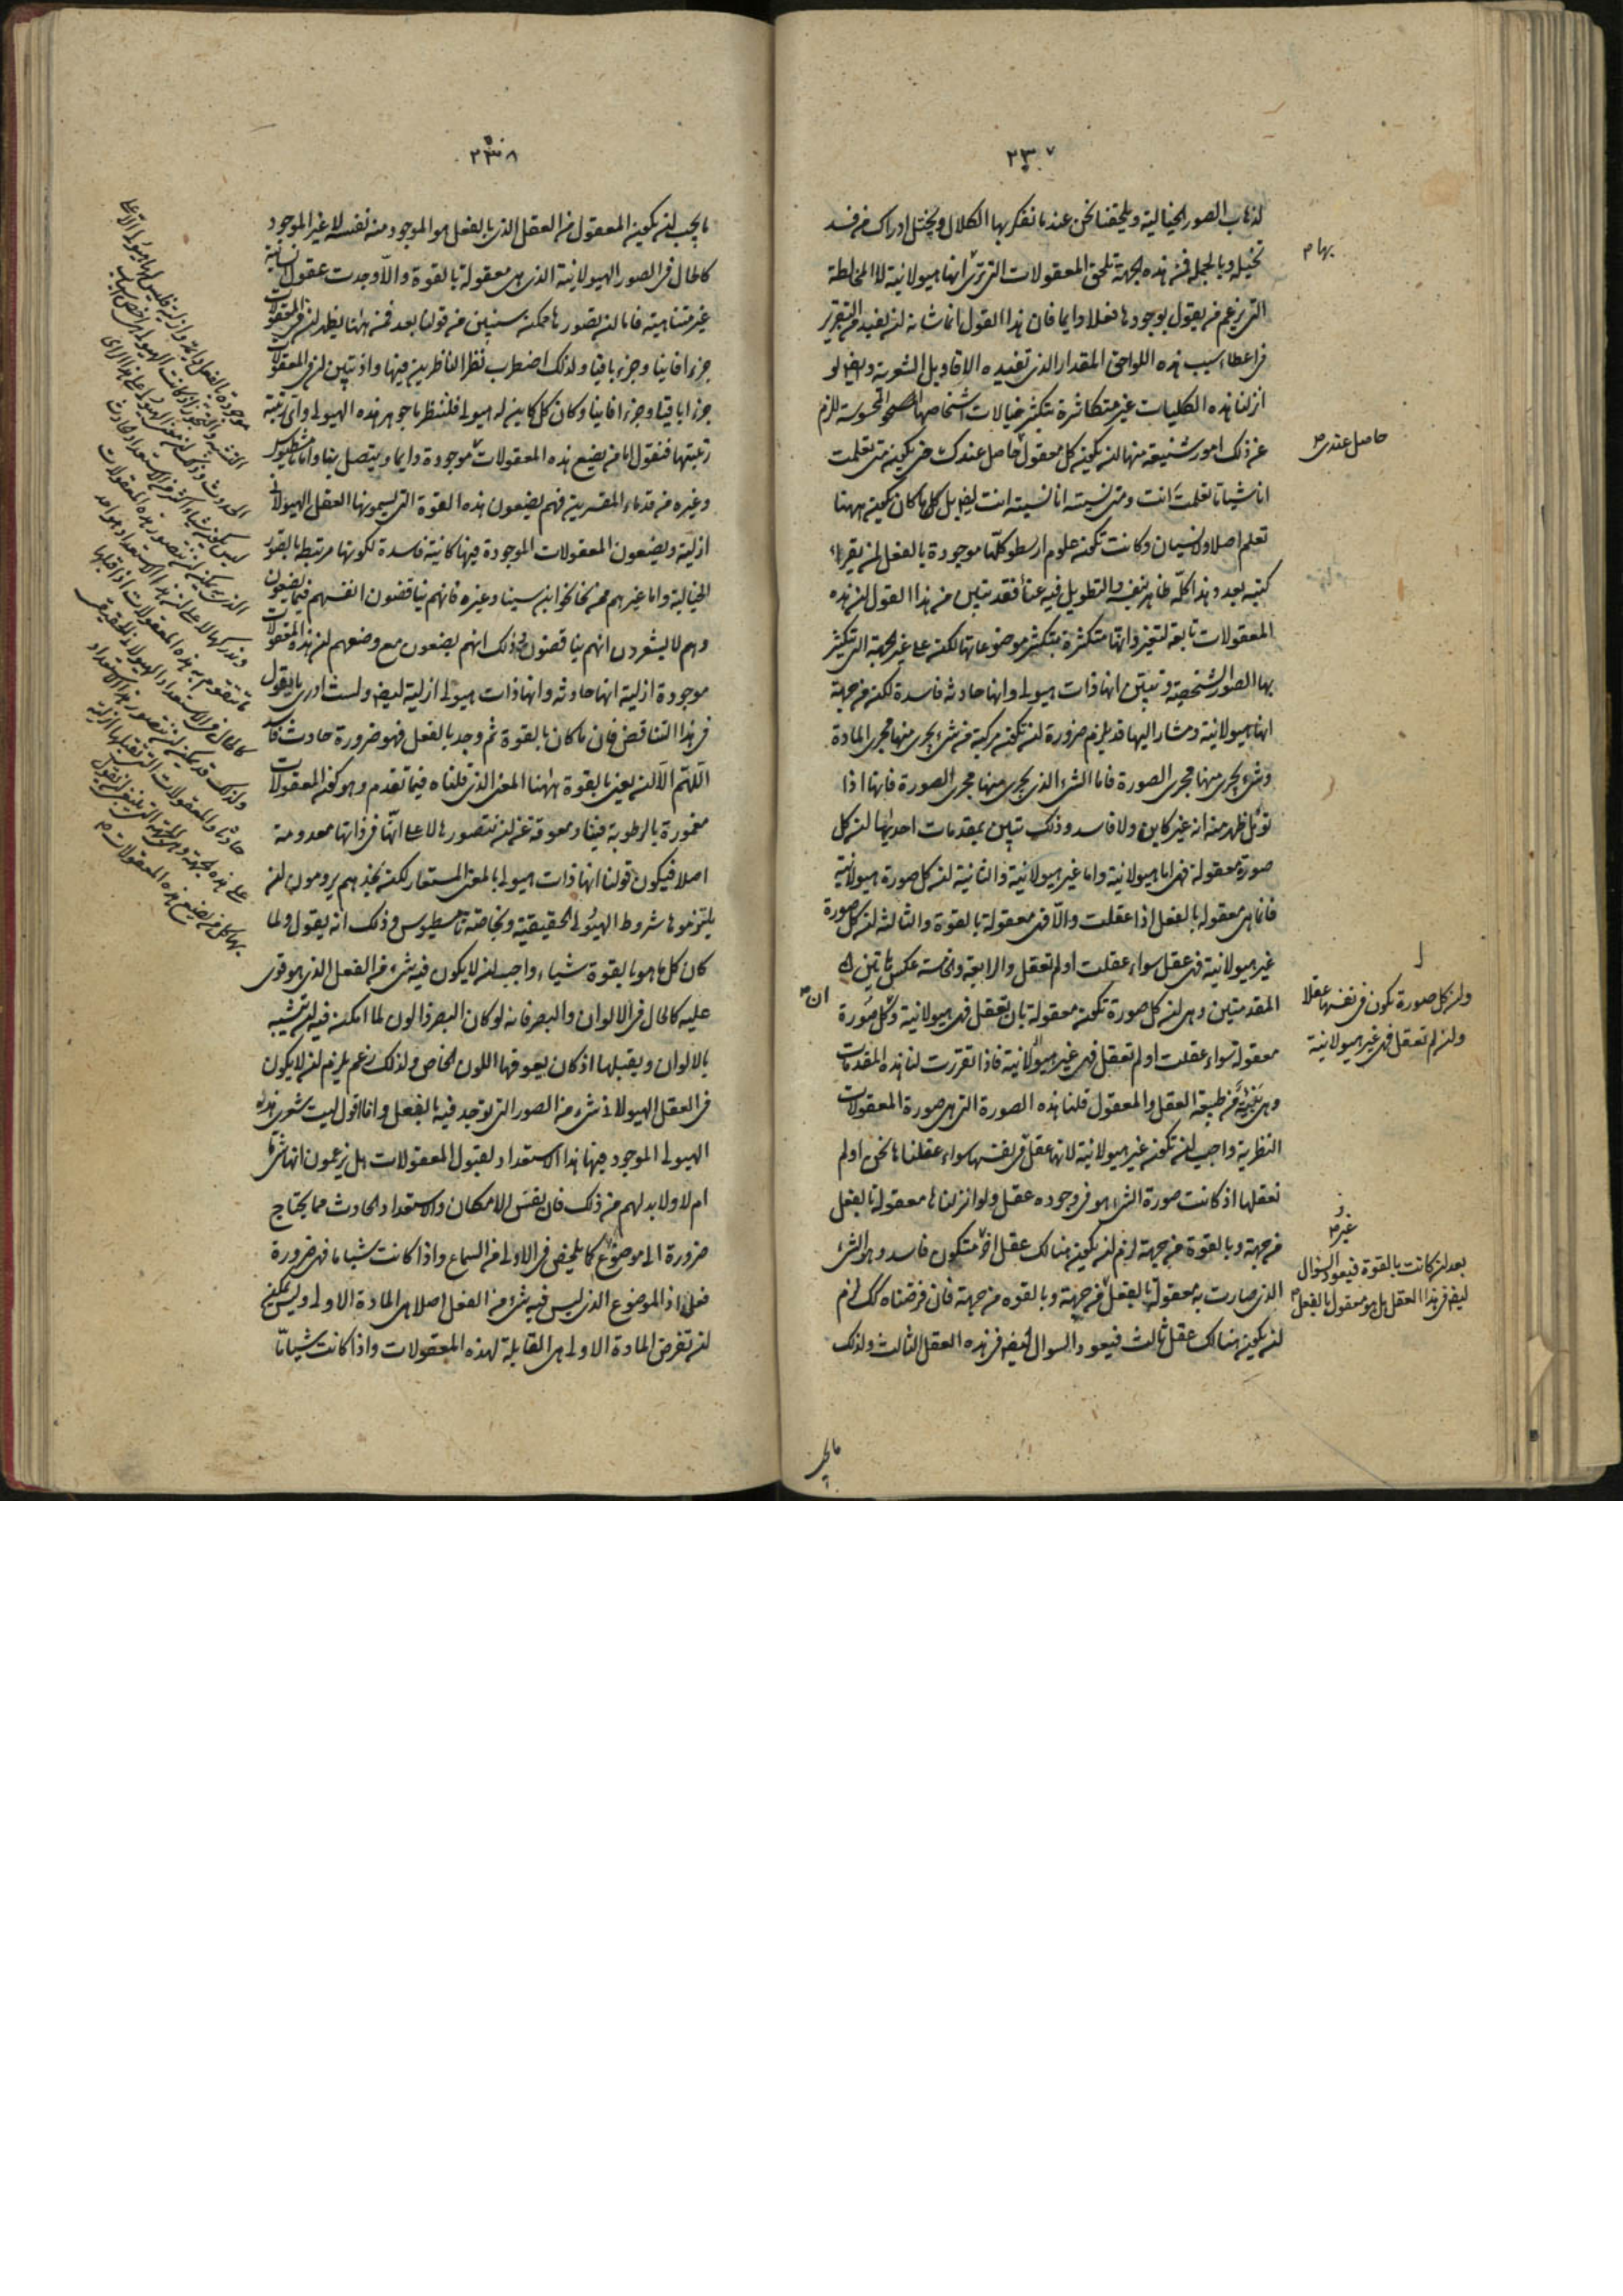 ٢٣٧
لذهاب الصور الخيالية ويلحقنا نحن عندما نفكر بها الكلال ويختل ادراك من فسد
تخيله وبالجملة فمن هذه الجهة تلحق المعقولات التي ترى انها هيولانية لا المخالطة
التي يزعم من يقول بوجودها فعلا دايما فان هذا القول انما شانه ان يفيد من التقرير
في اعطاء سبب هذه اللواحق المقدار الذي تفيده الاقاويل الشعرية وايضا لو
انزلنا هذه الكليات غير متكاثرة بتكثر خيالات اشخاصها المحسوسة للزم
عن ذلك امور شنيعة منها ان يكون كل معقول حاصل عندك حتى يكون متى تعلمت
انا شيئا ما تعلمته انت ومتى نسيته انا نسيته انت ايضا بل كان ما كان يكون ههنا
تعلم اصلا ولا نسيان وكانت تكون علوم ارسطو كلها موجودة بالفعل لمن يقرا
كتبه بعد وهذا كله ظاهر بنفسه والتطويل فيه عناء فقد تبين من هذا القول ان هذه
المعقولات تابعة لتغير وانها متكثرة بتكثر موضوعاتها لكن على غير الجهة التي تتكثر
بها الصور الشخصية وتبين انها ذات هيولى وانها حادثة فاسدة لكن من جهة
انها هيولانية ومشار اليها قد يلزم ضرورة ان تكون مركبة من شيء يجري منها مجرى المادة
وشيء يجري منها مجرى الصورة فاما الشيء الذي يجري منها مجرى الصورة فانها اذا
تؤمل ظهر منه انه غير كاين ولا فاسد وذلك يتبين بمقدمات احديها ان كل
صورة معقولة فهي اما هيولانية واما غير هيولانية والثانية ان كل صورة هيولانية
فانما هي معقولة بالفعل اذا عقلت والا فهي معقولة بالقوة والثالثة ان كل صورة
غير هيولانية فهي عقل سواء عقلت او لم تعقل والرابعة والخامسة عكس هاتين
المقدمتين وهي ان كل صورة تكون معقولة بان تعقل فهي هيولانية وكل صورة
معقولة سواء عقلت او لم تعقل فهي غير هيولانية فاذا تقررت لنا هذه المقدمات
وهي بينة من طبيعة العقل والمعقول قلنا هذه الصورة التي هي صورة المعقولات
النظرية واجب ان تكون غير هيولانية لانها عقل في نفسها سواء عقلناها نحن او لم
نعقلها اذ كانت صورة الشيء هو في وجوده عقل ولو انزلناها معقولة بالفعل
من جهة وبالقوة من جهة لزم ان يكون هنالك عقل اخر متكون فاسد وهو الشيء
الذي صارت به معقولة بالفعل من جهة وبالقوة من جهة فان فرضناه كك لزم
ان يكون هنالك عقل ثالث فيعود السوال ايضا في هذه العقل الثالث ولذلك
ما يجب
بها م
حاصل عندي م
وان كل صورة تكون في نفسها عقلا
وان لم تعقل فهي غير هيولانية
ان م
غير م
بعد ان كانت بالقوة فيعود السؤال
ايضا في هذا العقل هل هو معقول بالفعل م
٢٣٨
ما يجب ان يكون المعقول من العقل الذي بالفعل هو الموجود منه نفسه لا غير الموجود
كالحال في الصور الهيولانية الذي هي معقولة بالقوة والا وجدت عقول انسانية
غير متناهية فاما ان تصورها ممكن سنبين من قولنا بعد فمن ههنا يظهر ان في المعقولات
جزءا فانيا وجزء باقيا ولذلك اضطرب نظر الناظرين فيها واذ تبين ان في المعقولات
جزءا باقيا وجزءا فانيا وكان كل كاين له هيولى فلننظر ما جوهر هذه الهيولى واي رتبة
رتبتها فنقول اما من يضع هذه المعقولات موجودة دايما ويتصل بنا واما ثامسطيوس
وغيره من قدماء المفسرين فهم يضعون هذه القوة التي يسمونها العقل الهيولاني
ازلية ويضعون المعقولات الموجودة فيها كاينة فاسدة لكونها مرتبطة بالصور
الخيالية واما غيرهم ممن نحا نحوا ابن سينا وغيره فانهم يناقضون انفسهم فيما يضعون
وهم لا يشعرون انهم يناقضون وذلك انهم يضعون مع وضعهم ان هذه المعقولات
موجودة ازلية انها حادثة وانها ذات هيولى ازلية ايضا ولست ادري ما يقول
في هذا التناقض فان ما كان بالقوة ثم وجد بالفعل فهو ضرورة حادث فاسد
اللهم الا ان يعني بالقوة ههنا المعنى الذي قلناه فيما تقدم وهو كون المعقولات
مغمورة بالرطوبة فينا ومعوقة عن ان نتصورها لا على انها في ذاتها معدومة
اصلا فيكون قولنا انها ذات هيولى بالمعنى المستعار لكن نجدهم يرومون ان
يلتزموها شروط الهيولى الحقيقية وبخاصة ثامسطيوس وذلك انه يقول ولما
كان كل ما هو بالقوة شياء واجب ان لا يكون فيه شيء من الفعل الذي هو قوي
عليه كالحال في الالوان والبصر فانه لو كان البصر ذا لون لما امكن فيه ان يتشبه
بالالوان ويقبلها اذ كان يعوقها اللون الخاص ولذلك زعم يلزم ان لا يكون
في العقل الهيولاني شيء من الصور التي توجد فيه بالفعل وانا اقول ليت شعري هذه
الهيولى الموجود فيها هذا الاستعداد لقبول المعقولات هل يزعمون انها شي ما
ام لا ولا بد لهم من ذلك فان نفس الامكان والاستعداد الحادث مما يحتاج
ضرورة الى موضوع كما يلخص في الاولى من السماع واذا كانت شيئا ما فهي ضرورة
فعل اذ الموضوع الذي ليس فيه شيء من الفعل اصلا هي المادة الاولى وليس يمكن
ان تفرض المادة الاولى هي القابلة لهذه المعقولات واذا كانت شيئا ما